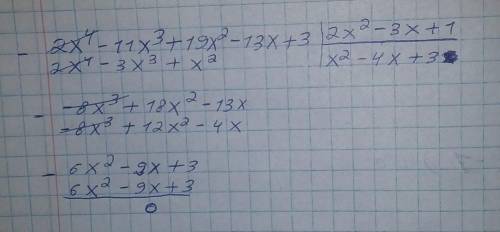 - 2x⁴ - 11x³ + 19x² - 13x + 3 | 2x² - 3x + 1
2x⁴ - 3x³ + x² | x² - 4x + 3
- -8x³ + 18x² - 13x
-8x³ + 12x² - 4x
- 6x² - 9x + 3
6x² - 9x + 3
0